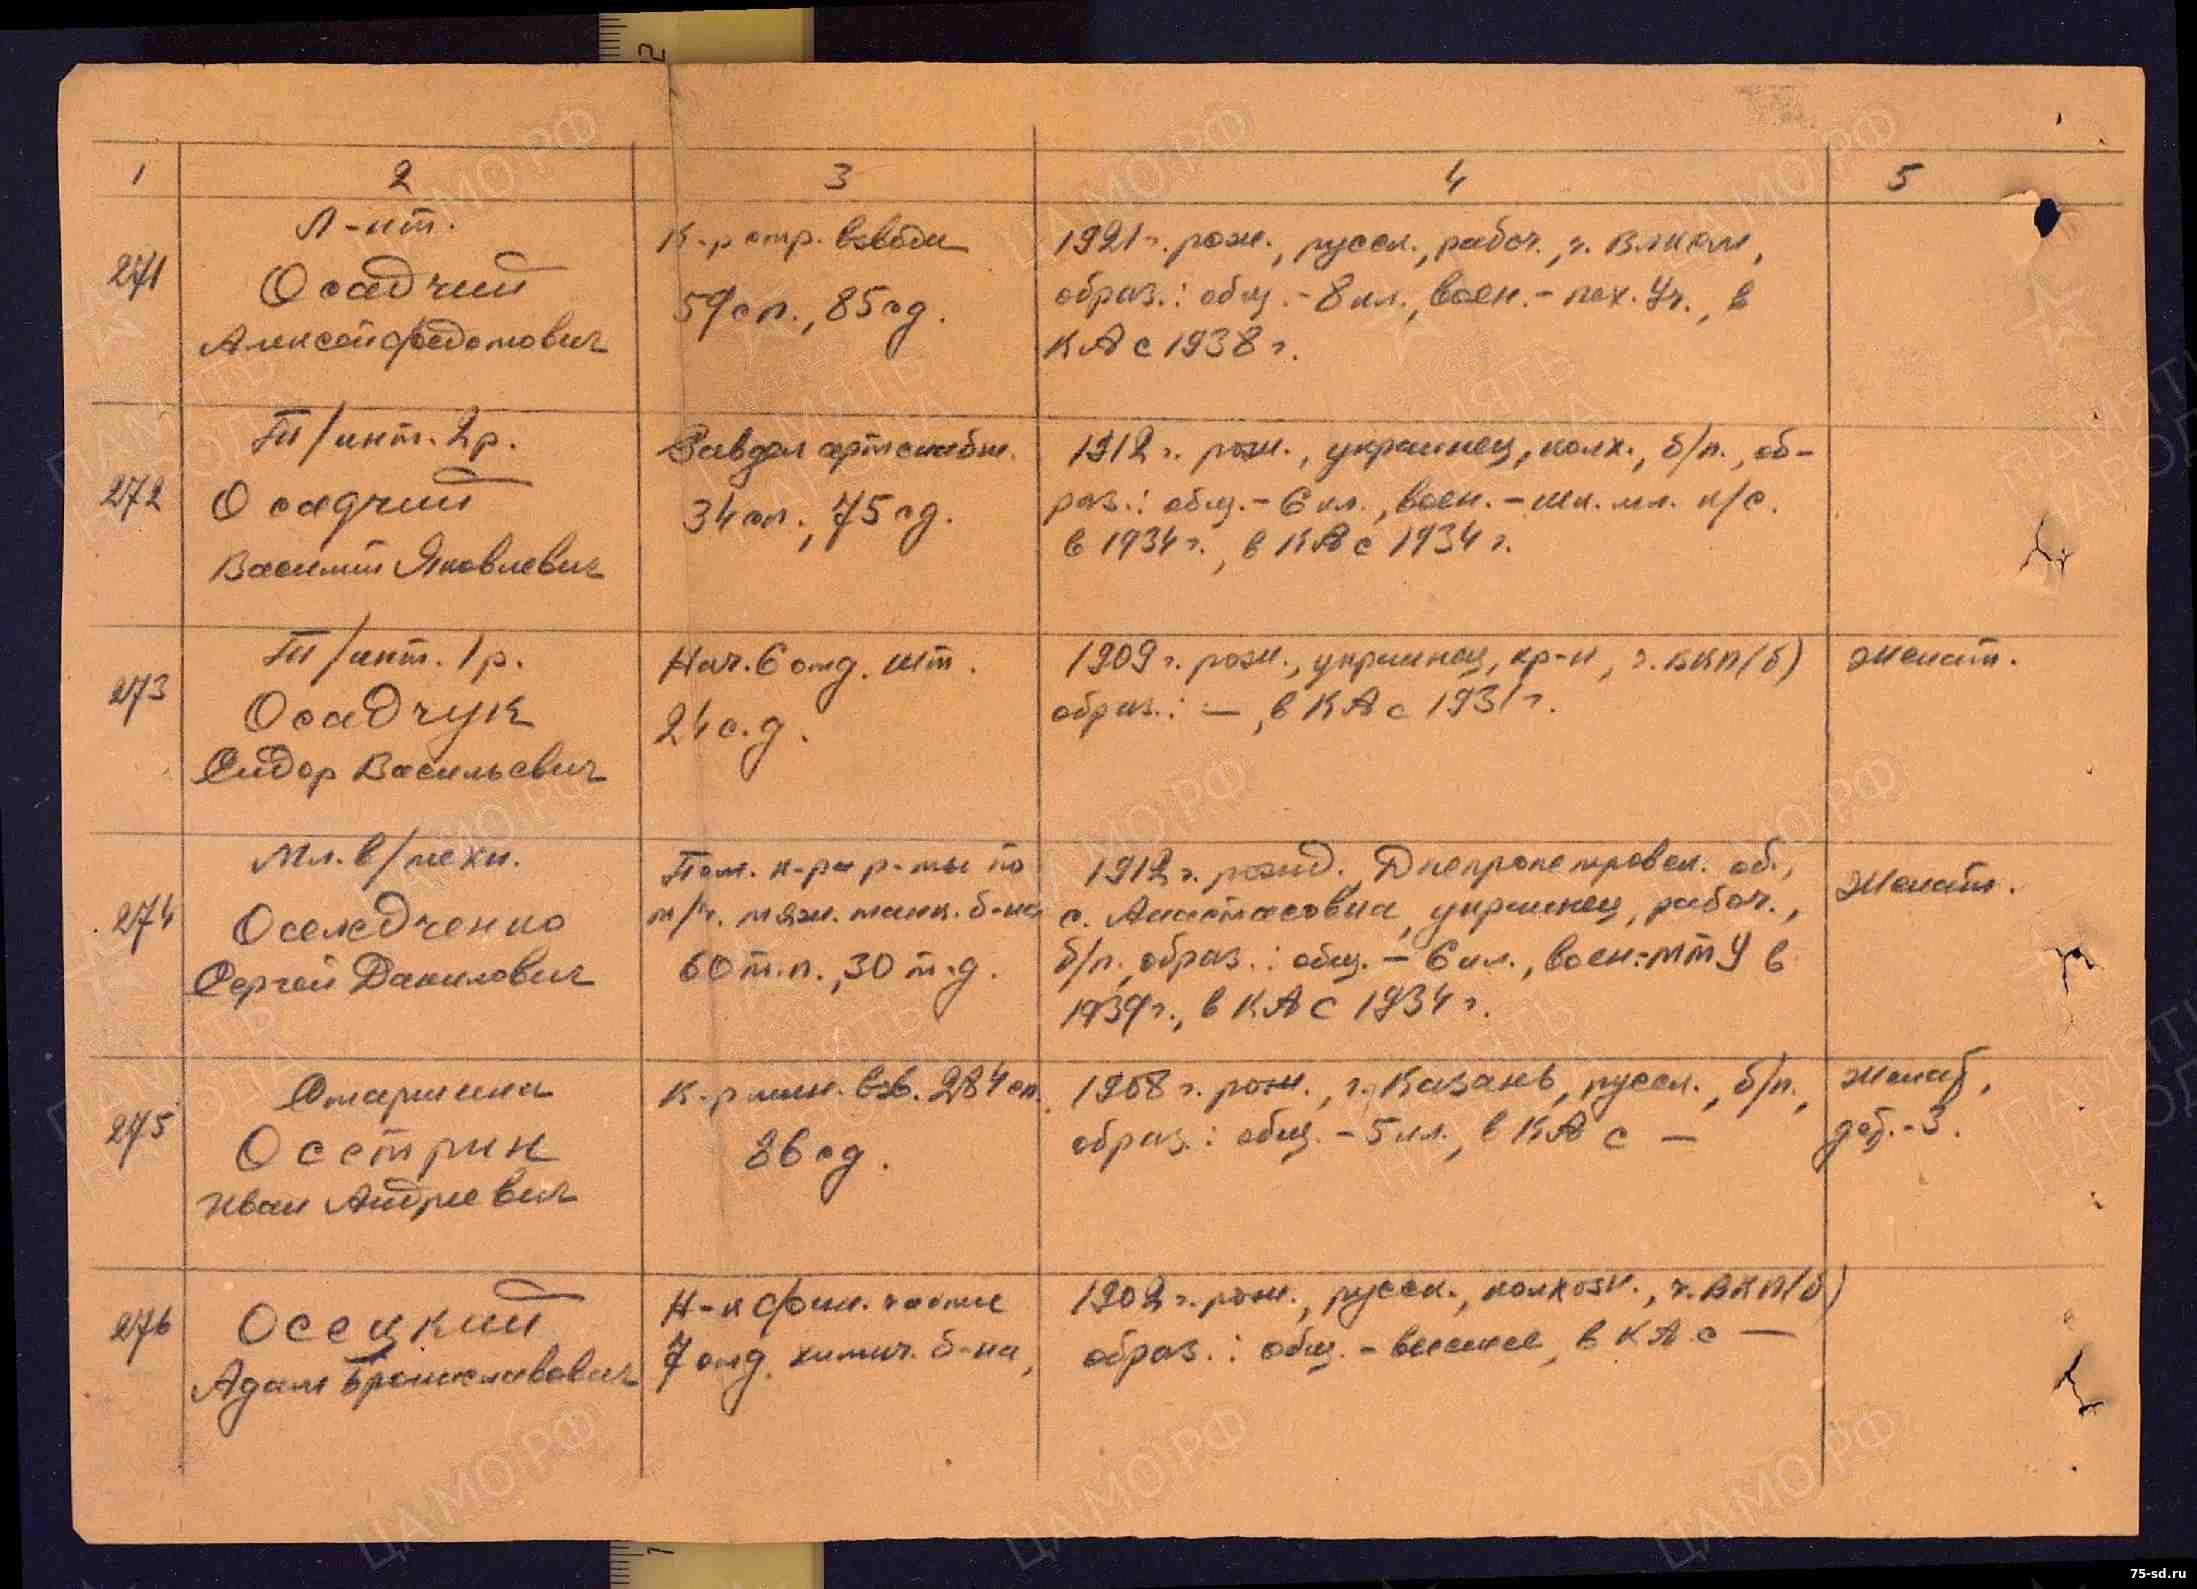 1 2 3 4 5
271
Л-нт.
Осадчий
Алексей Федотович
К-р стр. взвода
59 сп., 85 сд.
1921 г. рож., русск., рабоч., ч. ВЛКСМ,
образ.: общ. - 8 кл., воен. - пех. Уч., в
КА с 1938 г.
272
Т/инт. 2 р.
Осадчий
Василий Яковлевич
Завдел артснабж.
34 сп., 75 сд.
1912 г. рож., украинец, колх., б/п., об-
раз.: общ. - 6 кл., воен. - шк. мл. к/с.
в 1934 г., в КА с 1934 г.
273
Т/инт. 1 р.
Осадчук
Сидор Васильевич
Нач. 6 отд. шт.
24 с.д.
1909 г. рож., украинец, кр-н, ч. ВКП(б)
образ.: —, в КА с 1931 г.
Женат.
274
Мл. в/техн.
Оселедченко
Сергей Данилович
Пом. к-ра р-ты по
т/ч. тяж. танк. б-на
60 т.п., 30 т.д.
1912 г. рожд. Днепропетровск. об.,
с. Анастасовка, украинец, рабоч.,
б/п. образ.: общ. - 6 кл., воен: - МТУ в
1939 г., в КА с 1934 г.
Женат.
275
Старшина
Осетрин
Иван Андреевич
К-р мин. взв. 284 сп.
86 сд.
1908 г. рож., г. Казань, русск., б/п.,
образ.: общ. - 5 кл., в КА с —
Женат,
дет. - 3.
276
Осецкий
Адам Брониславович
Н-к фин. части
7 отд. химич. б-на,
1902 г. рож., русск., колхозн., ч. ВКП(б)
образ.: общ. - высшее, в КА с —
ЦАМО.РФ
ПАМЯТЬ НАРОДА
75-sd.ru